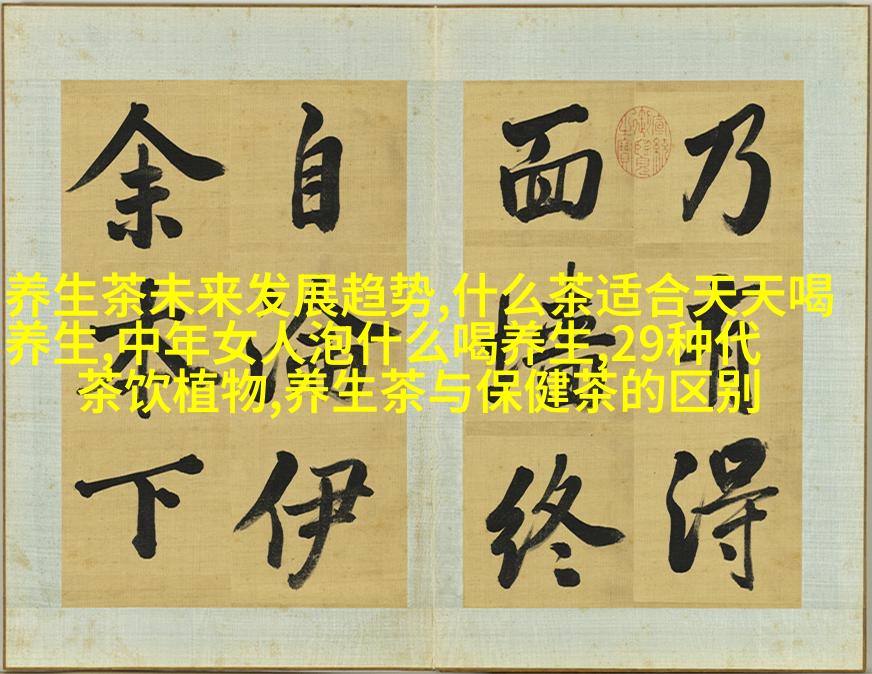 乃有得
面墻終
自伊
余下
养生茶未来发展趋势,什么茶适合天天喝
养生,中年女人泡什么喝养生,29种代
茶饮植物,养生茶与保健茶的区别